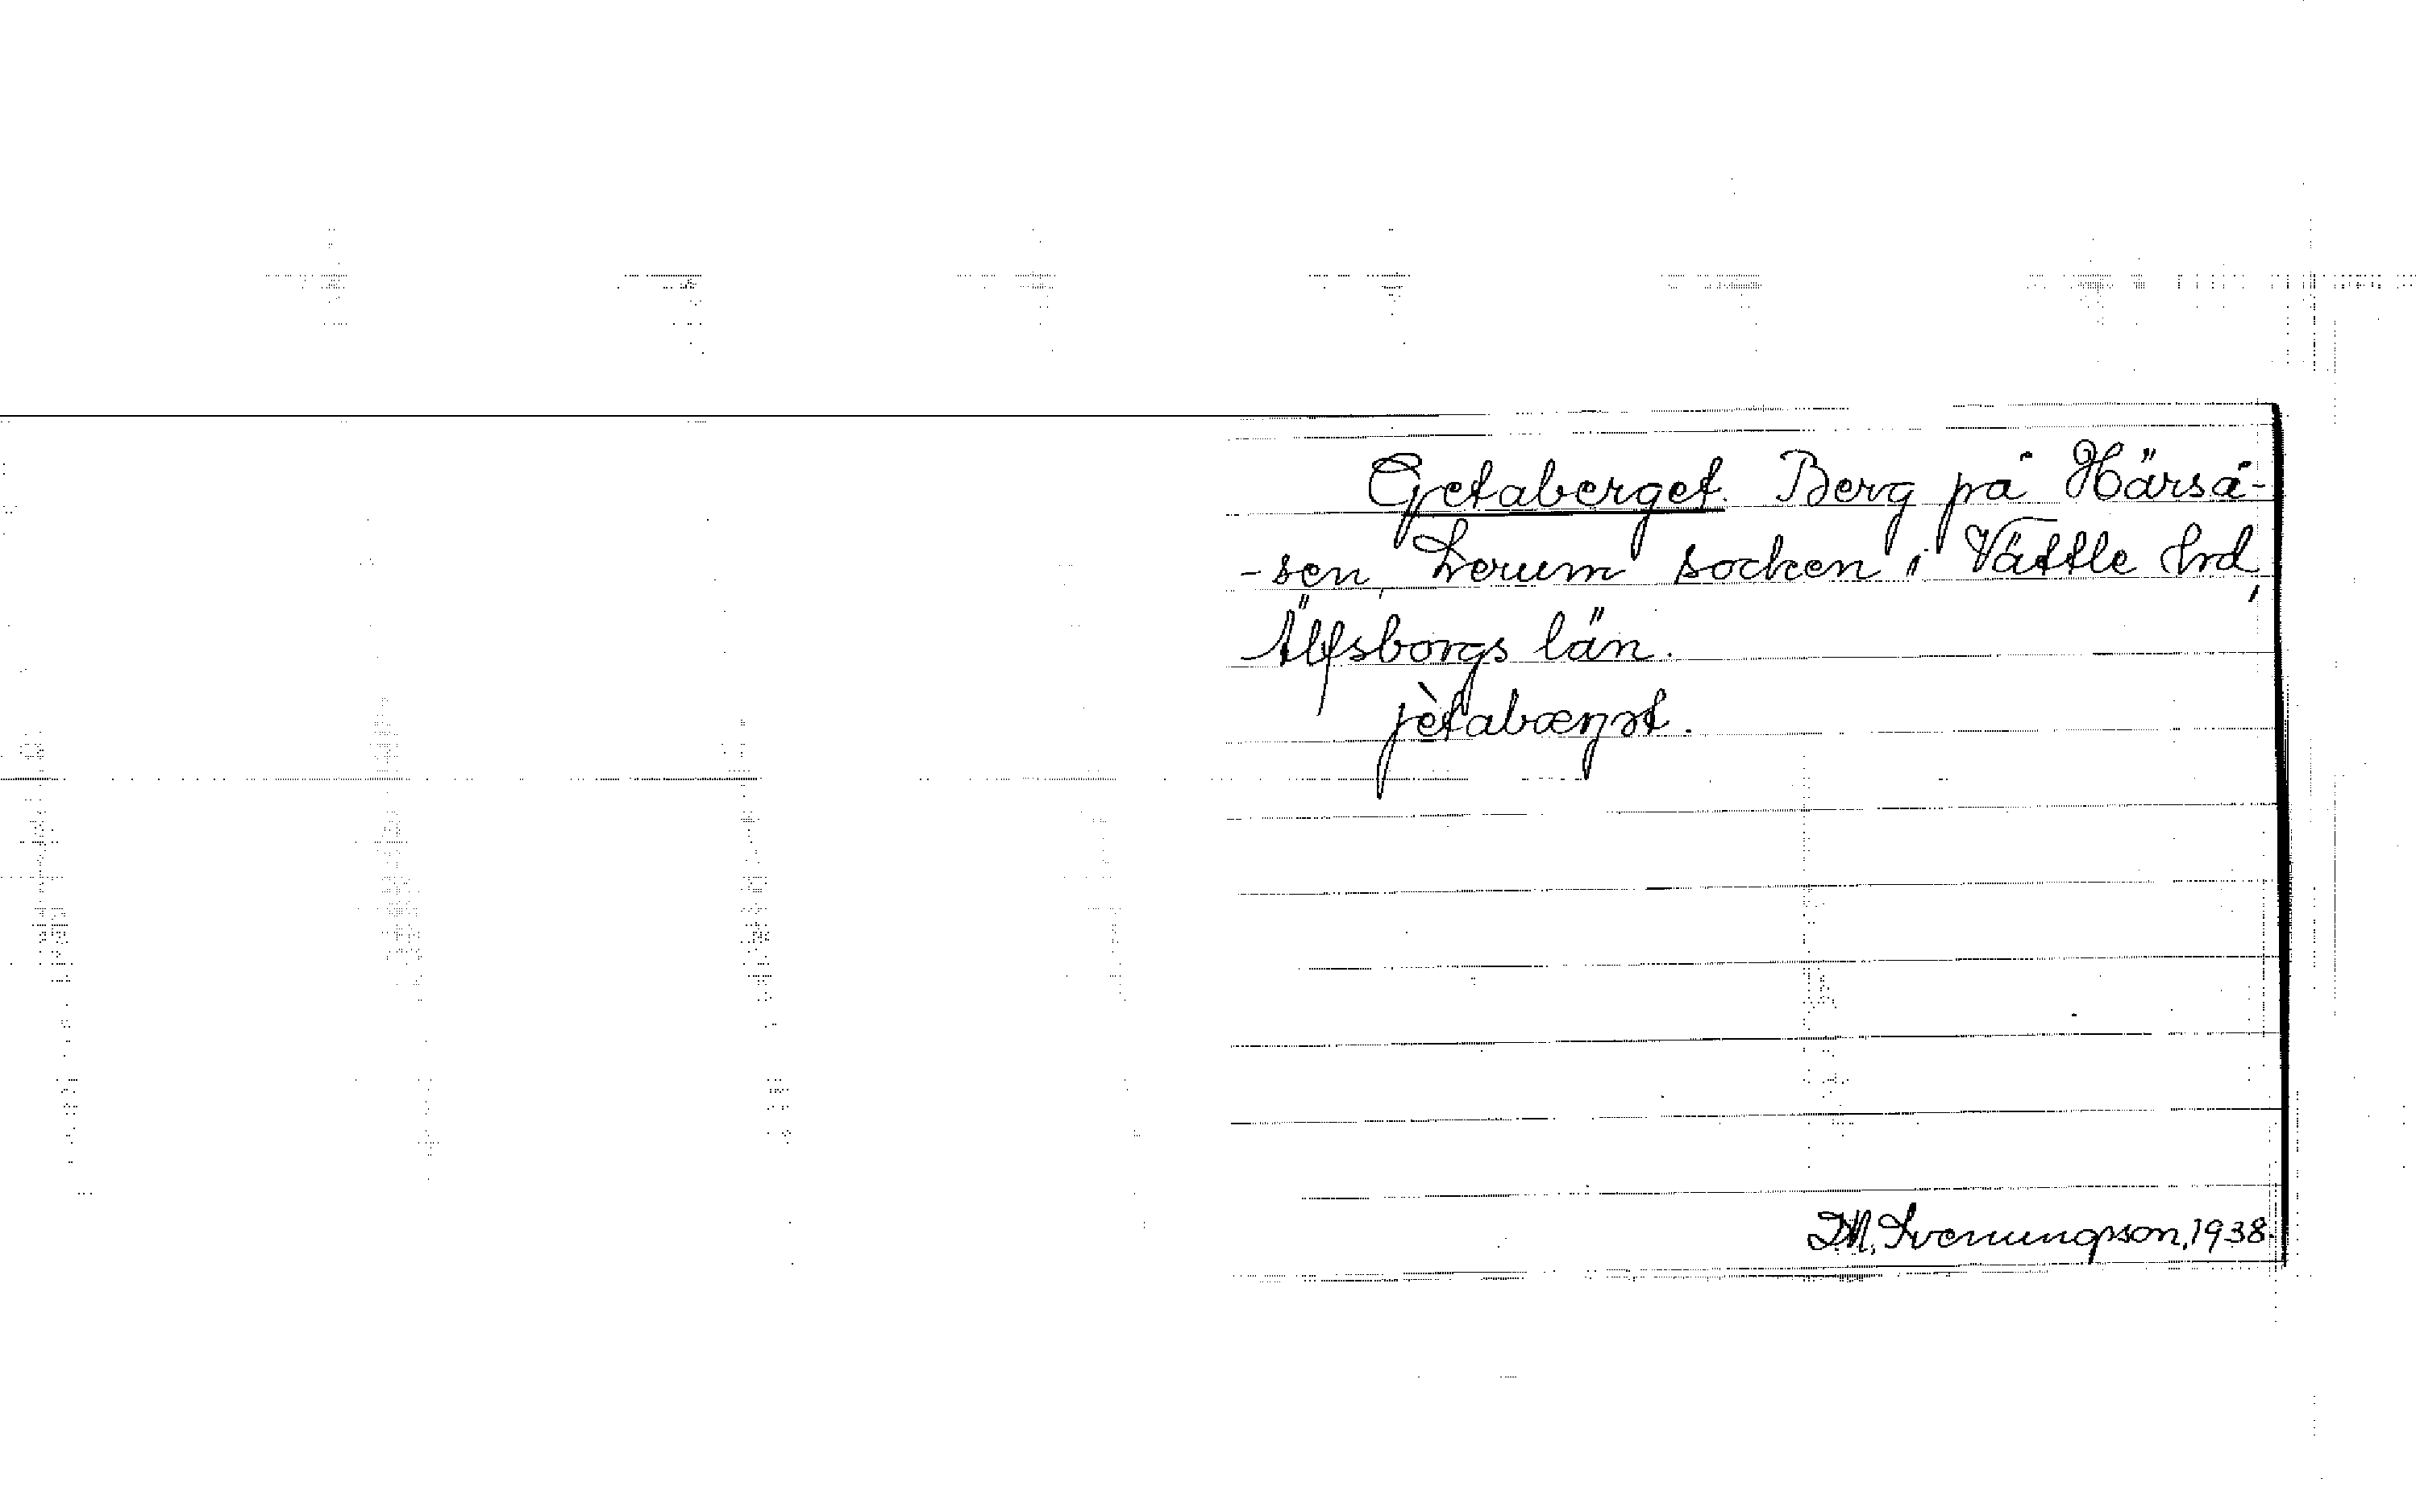 Getaberget. Berg på Härså-
-sen, Lerum socken i Vättle hd,
Älfsborgs län.
jètabærgət.
D.M. Svenungsson, 1938.